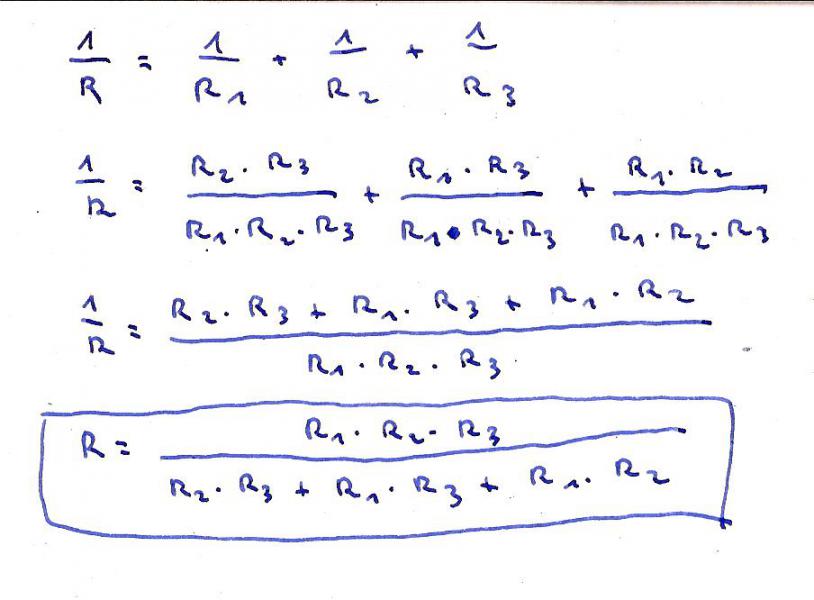 1/R = 1/R1 + 1/R2 + 1/R3
1/R = R2 · R3/R1 · R2 · R3 + R1 · R3/R1 · R2 · R3 + R1 · R2/R1 · R2 · R3
1/R = R2 · R3 + R1 · R3 + R1 · R2/R1 · R2 · R3
R = R1 · R2 · R3/R2 · R3 + R1 · R3 + R1 · R2